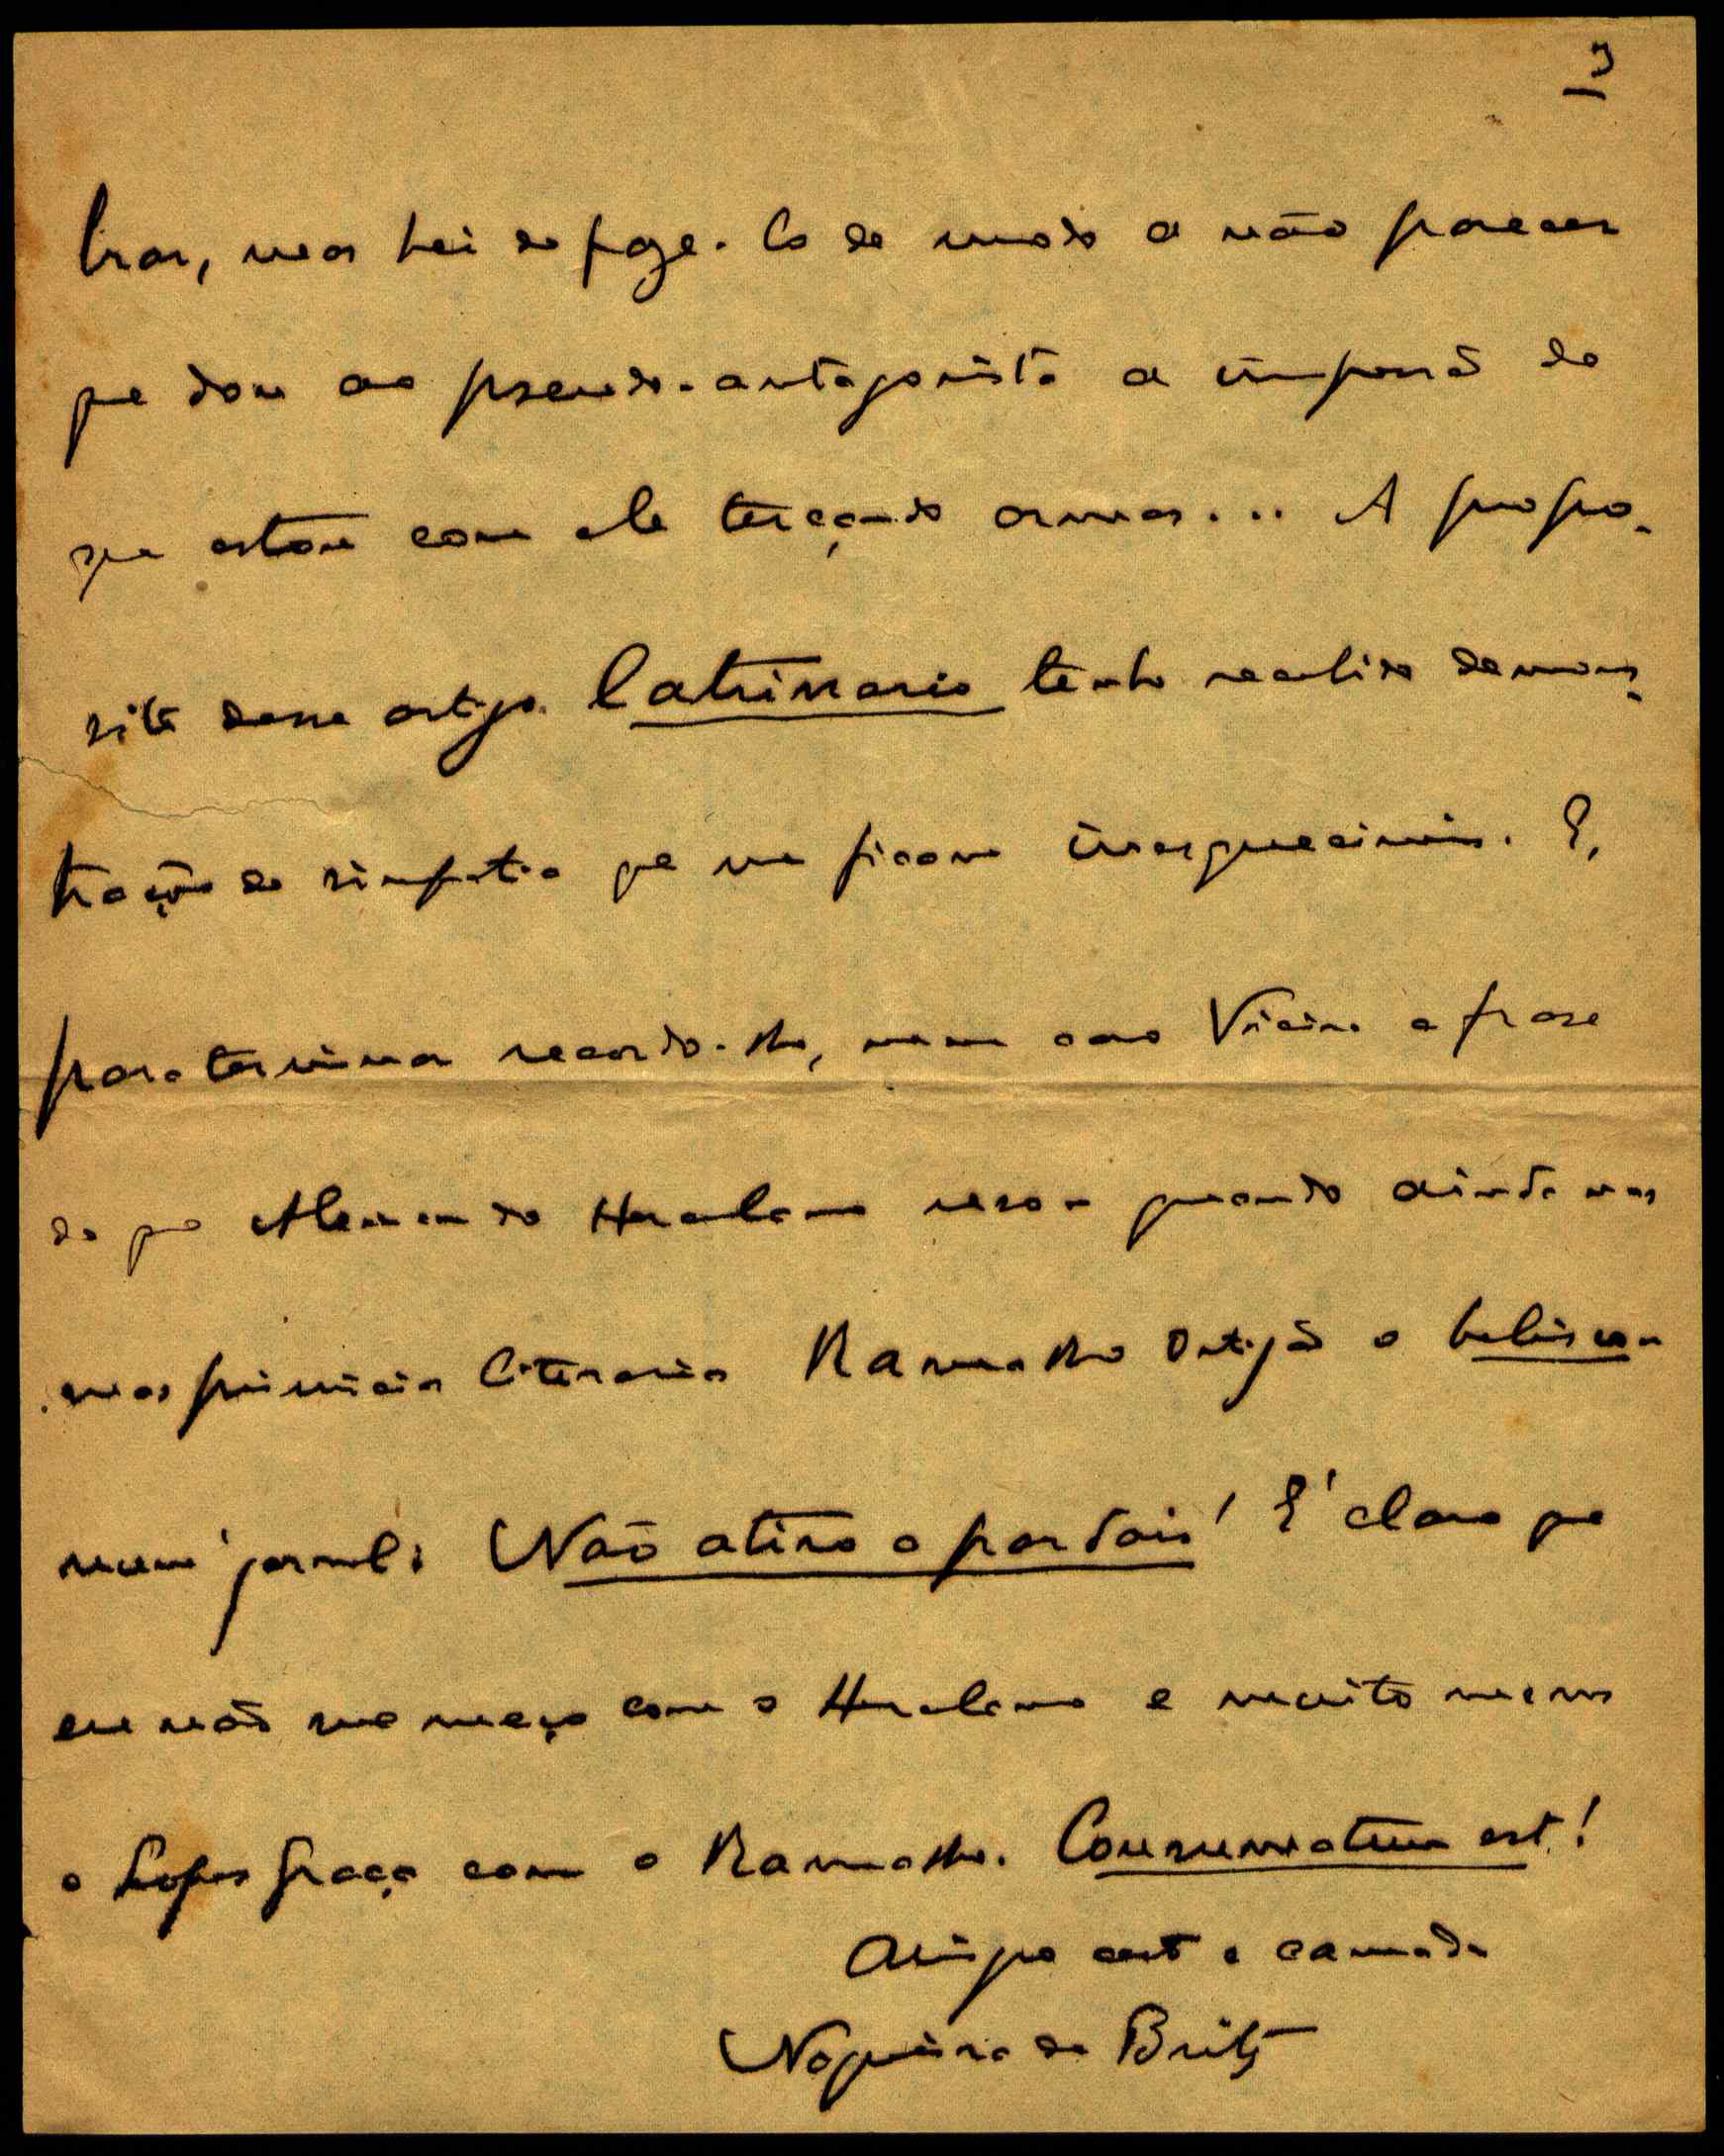 3
trar, mas hei de faze-lo de modo a não parecer
que dou ao pseudo-antagonista a impressão de
que estou com ele terçando armas... A propo-
sito desse artigo latrinario tenho recebido demons-
trações de simpatia que me ficam inesqueciveis. E,
para terminar recordo-lhe, meu caro Vieira a frase
de que Alexandre Herculano usou quando ainda nas
suas primicias literarias Ramalho Ortigão o beliscou
num jornal: Não atiro a pardais! E' claro que
eu não me meço com o Herculano e muito menos
o Lopes Graça com o Ramalho. Consummatum est!
Amigo certo e camarada
Nogueira de Brito